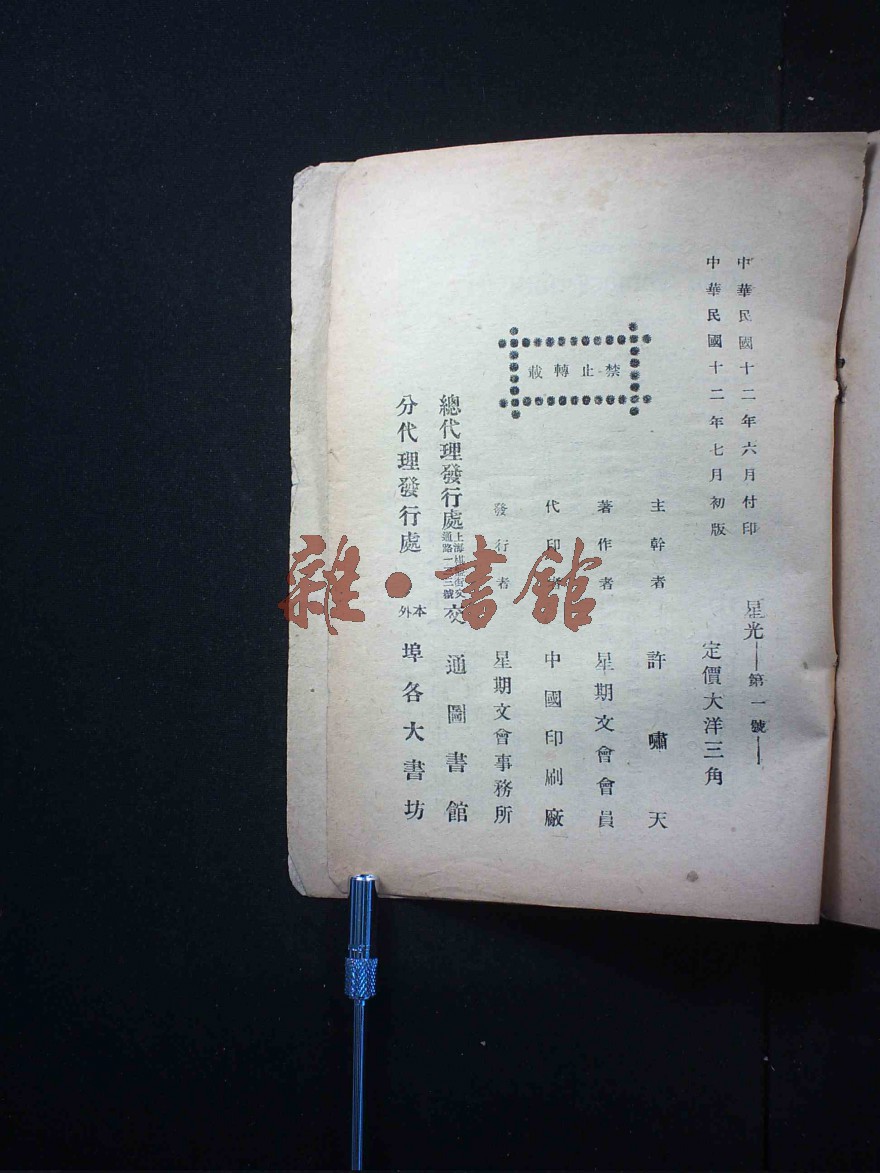 中華民國十二年六月付印
中華民國十二年七月初版
星光—第一號—
定價大洋三角
禁止轉載
主幹者 許嘯天
著作者 星期文會會員
代印者 中國印刷廠
發行者 星期文會事務所
總代理發行處 上海棋盤街交通路一 三號 交通圖書館
分代理發行處 本外埠各大書坊
雜·書館